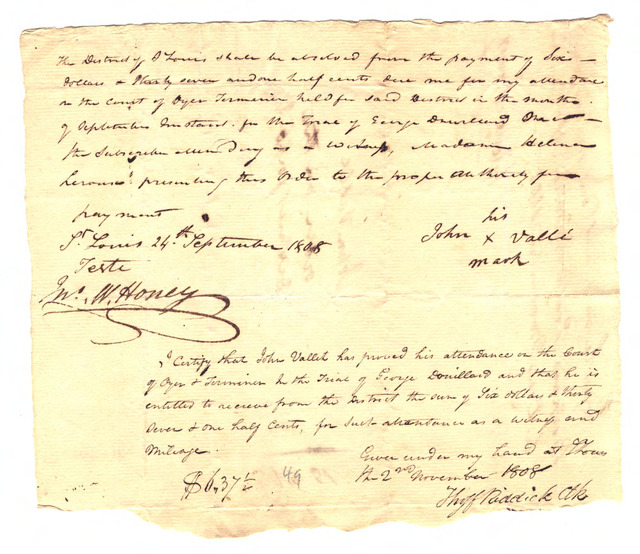 The District of St Louis shall be absolved from the payment of Six
dollars & Thirty seven and one half cents due me for my attendance
on the Court of Oyer Terminer held for said District in the month
of September Instant. for the Trial of George
the Subscriber attending as a witness, Madame Helena
Leroux presenting this Order to the proper Authority for
payment
St. Louis 24th September 1808
his
John x Vallé
mark
Teste
Jno. W. Honey
I Certify that John Vallé has proved his attendance on the Court
of Oyer & Terminer In the Trial of George Douillard and that he is
entitled to recieve from the District the sum of Six dollars & thirty
Seven & one half Cents, for such attendance as a witness and
Mileage.
Given under my hand at St Louis
the 2nd November 1808
$6,37½
49
Thos F Riddick Clk